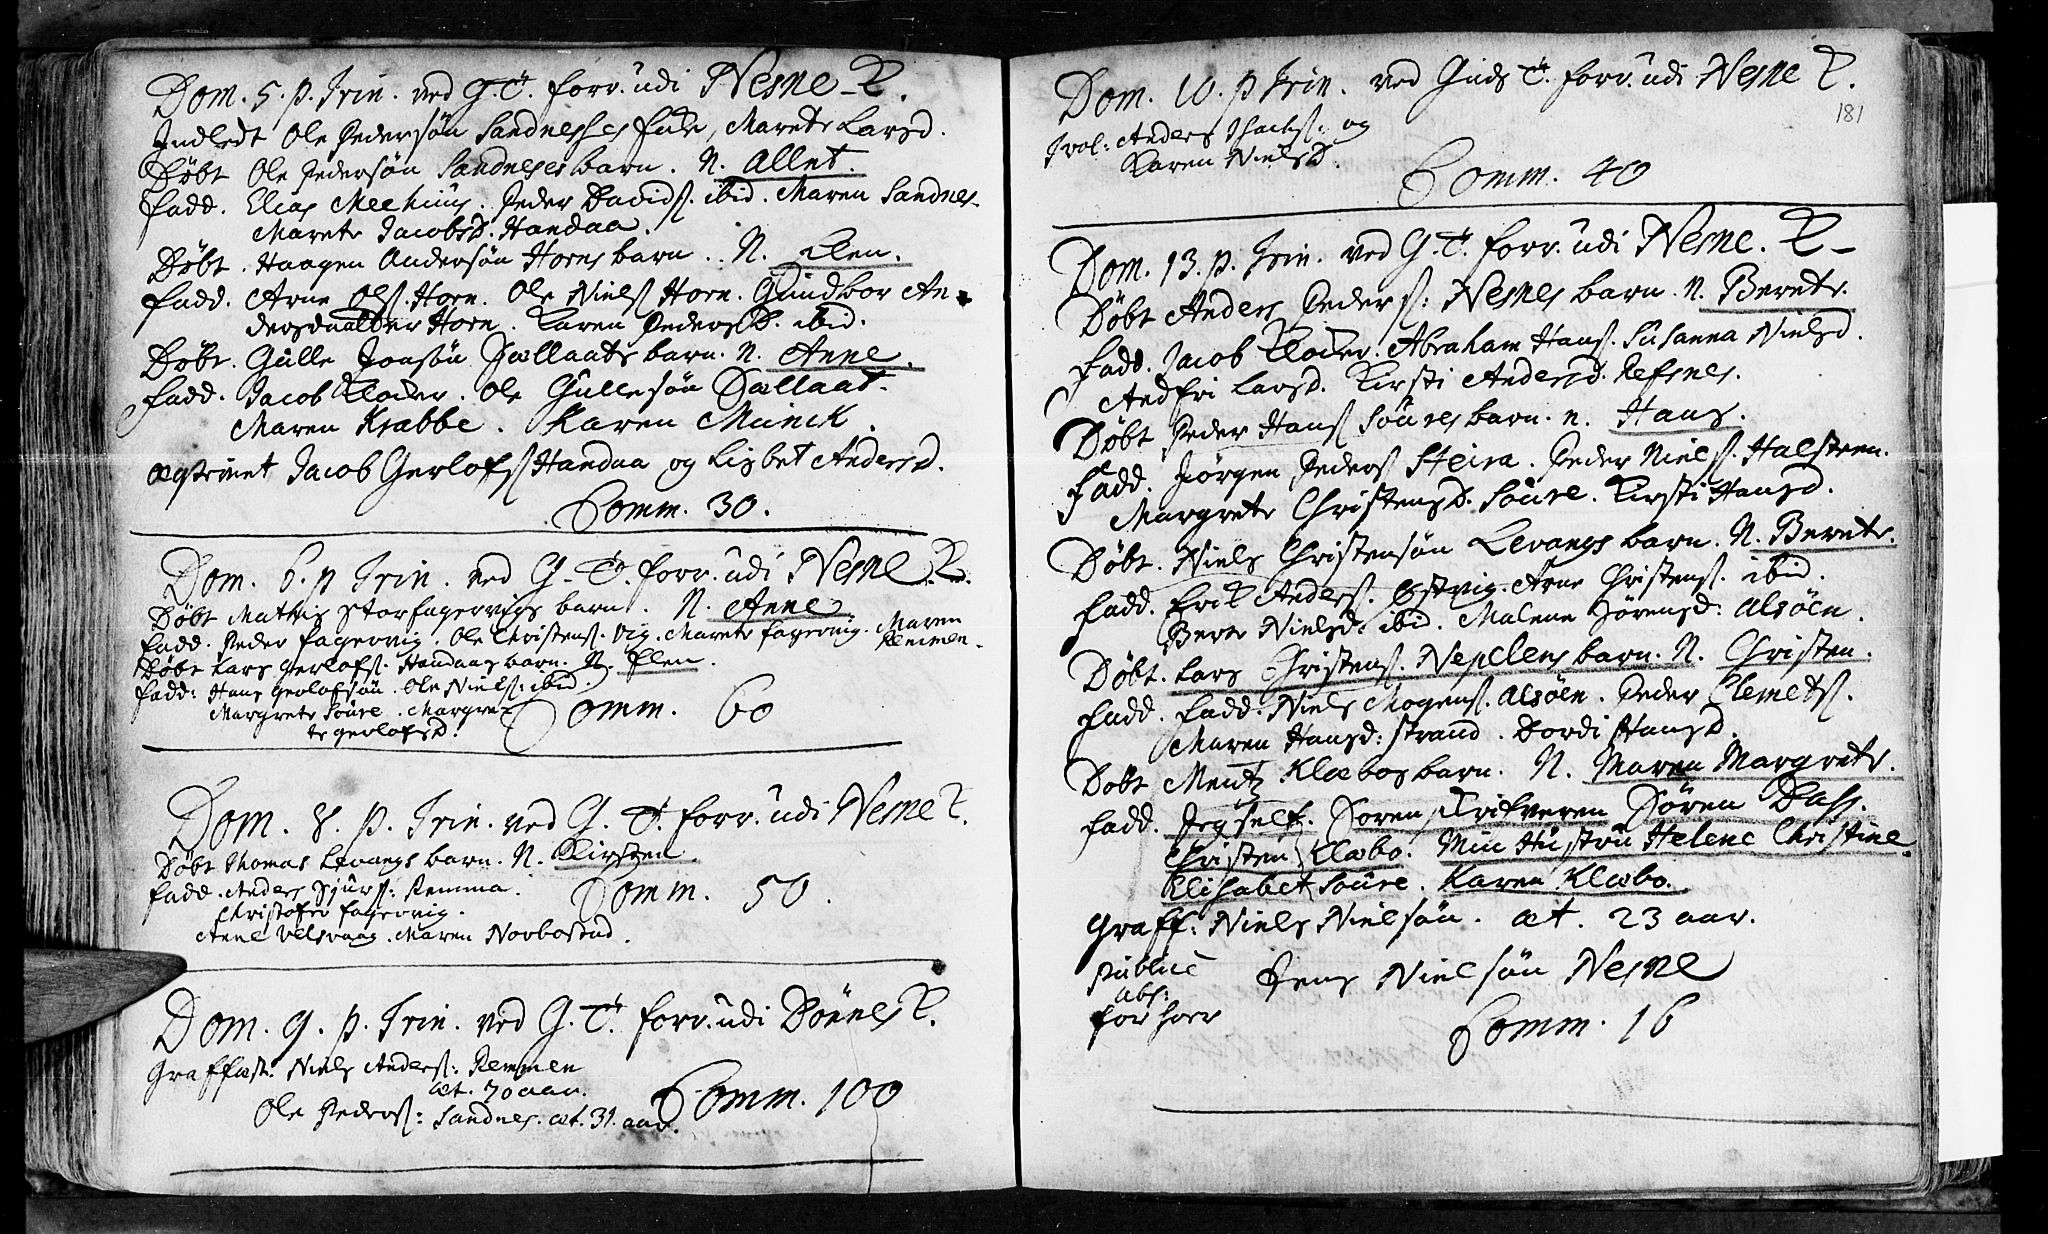 Dom. 5. p. Trin. ved G. T. forr. udi Nesne K.
Indledt Ole Pedersøn Sandnesses Marete Larsd.
Døbt Ole Pedersøn Sandneses barn. N. Allet.
Fadd. Elias Mechius. Peder Davids. ibid. Maren Sandnes.
Marete Jacobsd. Handaa.
Døbt. Haagen Andersøn Horns barn. N. Elen.
Fadd. Arne Ols. Horn. Ole Niels Horn. Gundbor An-
dersdaatter Horn. Karen Pedersd. ibid.
Døbt. Gulle Jonsøn barn. N. Anne.
Fadd. Jacob Klocker. Ole Gullesøn
Maren Krabbe. Karen Munck.
Ægteviet Jacob Gerlofs Handaa og Lisbet Andersd.
Comm. 30.
Dom. 6. p Trin. ved G. T. forr. udi Nesne K.
Døbt Mathis Storfagervigs barn. N. Anne
Fadd. Peder Fagervig. Ole Christens. Vig. Marete Fagervig. Maren
Døbt Lars Gerlofs. Handaas barn. N. Elen.
Fadd: Hans Gerlofsøn. Ole Niels: ibid.
Margrete Soure. Margre-
te Gerlofsd.
Comm. 60
Dom. 8. p. Trin. ved G. T. forr. udi Nesne K.
Døbt Thomas Levangs barn. N. Kirsten.
Fadd. Anders Sjurs: Remma.
Christofer Fagervig.
Anne Velsvaag. Maren Norbostad.
Comm. 50.
Dom. 9. p. Trin. ved G. T. forr. udi Dønnes K.
Graffæst. Niels Anders: Remmen
æt. 70 aar.
Ole Peders: Sandnes. æt. 31. aar.
Comm. 100
Dom. 10. p Trin. ved Guds T. forr. udi Nesne K.
181
Trol: Anders Isachs: og
Karen Nielsd.
Comm. 40
Dom. 13. p. Trin. ved G. T. forr. udi Nesne. K
Døbt Anders Peders: Nesnes barn. N. Berete.
Fadd. Jacob Klocker. Abraham Hans. Susanna Nielsd.
Larsd. Kirsti Andersd. Refsnes.
Døbt Peder Hans Soures barn. N. Hans.
Fadd. Jørgen Peders Steira. Peder Niels.
Margrete Christensd. Soure. Kirsti Hansd.
Døbt. Niels Christensøn Levangs barn. N. Berete.
Fadd. Erik Anders. Østvig. Arne Christens. ibid.
Berte Nielsd. ibid. Malene Sørensd: Alsøen.
Døbt. Lars Christens. Nepelens barn. N. Christen.
Fadd. Fadd. Niels Mogens. Alsøen. Peder Clemets.
Maren Hansd: Strand. Dordi Hansd.
Døbt Mentz Klæbos barn. N. Maren Margrete.
Fadd. Jeg self. Soren Søren Dass.
Christen Klæbo. Min Hustru Helene Christine.
Elisabet Soure. Karen Klæbo.
Graff: Niels Nielsøn. æt. 23 aar.
Publice
abs:
for hoer
Jens Nielsøn Nesne
Comm. 16